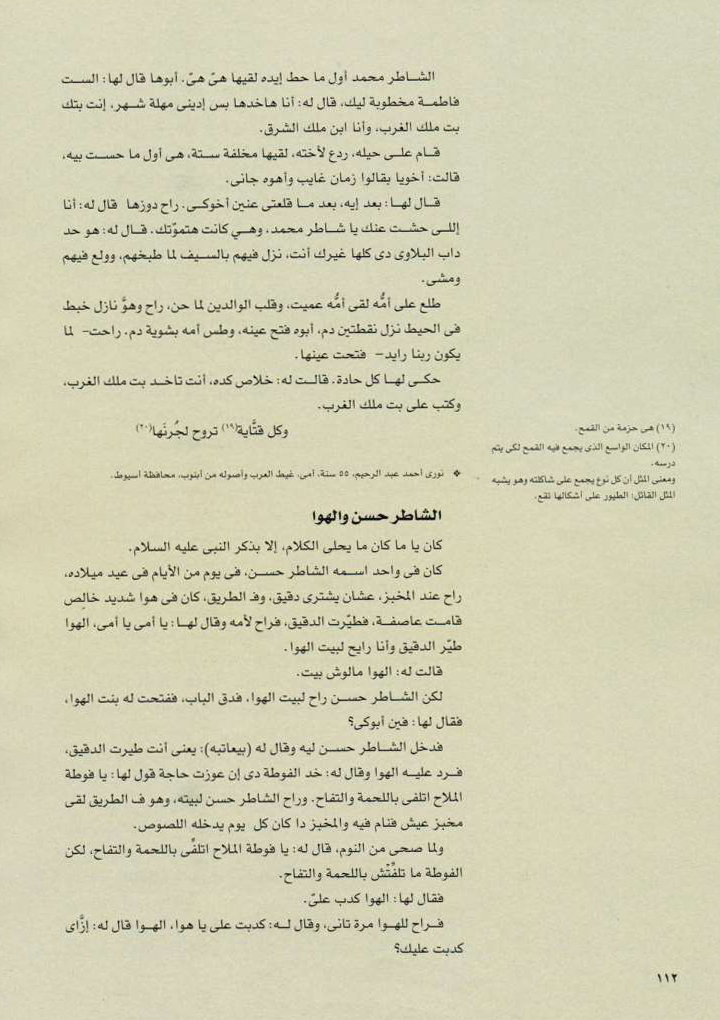 الشاطر محمد أول ما حط إيده لقيها هىّ هىّ. أبوها قال لها: الست
فاطمة مخطوبة ليك، قال له: أنا هاخدها بس إدينى مهلة شهر، إنت بتك
بت ملك الغرب، وأنا ابن ملك الشرق.
قام على حيله، ردع لأخته، لقيها مخلفة ستة، هى أول ما حست بيه،
قالت: أخويا بقالوا زمان غايب وأهوه جانى.
قال لها: بعد إيه، بعد ما قلعتى عنين أخوكى. راح دوزها قال له: أنا
إللى حشت عنك يا شاطر محمد، وهي كانت هتموّتك. قال له: هو حد
داب البلاوى دى كلها غيرك أنت، نزل فيهم بالسيف لما طبخهم، وولع فيهم
ومشى.
طلع على أمُّه لقى أمُّه عميت، وقلب الوالدين لما حن، راح وهوَّ نازل خبط
فى الحيط نزل نقطتين دم، أبوه فتح عينه، وطس أمه بشوية دم. راحت- لما
يكون ربنا رايد- فتحت عينها.
حكى لها كل حادة. قالت له: خلاص كده، أنت تاخد بت ملك الغرب،
وكتب على بت ملك الغرب.
وكل قتَّاية(١٩) تروح لجُرنَها(٢٠)
❖ نورى أحمد عبد الرحيم، ٥٥ سنة، أمى، غيط العرب وأصوله من أبنوب، محافظة أسيوط.
الشاطر حسن والهوا
كان يا ما كان ما يحلى الكلام، إلا بذكر النبى عليه السلام.
كان فى واحد اسمه الشاطر حسن، فى يوم من الأيام فى عيد ميلاده،
راح عند المخبز، عشان يشترى دقيق، وف الطريق، كان فى هوا شديد خالِص
قامت عاصفة، فطيّرت الدقيق، فراح لأمه وقال لها: يا أمى يا أمى، الهوا
طيّر الدقيق وأنا رايح لبيت الهوا.
قالت له: الهوا مالوش بيت.
لكن الشاطر حسن راح لبيت الهوا، فدق الباب، ففتحت له بنت الهوا،
فقال لها: فين أبوكى؟
فدخل الشاطر حسن ليه وقال له (بيعاتبه): يعنى أنت طيرت الدقيق،
فرد عليه الهوا وقال له: خد الفوطة دى إن عوزت حاجة قول لها: يا فوطة
الملاح اتلفى باللحمة والتفاح. وراح الشاطر حسن لبيته، وهو ف الطريق لقى
مخبز عيش فنام فيه والمخبز دا كان كل يوم يدخله اللصوص.
ولما صحى من النوم، قال له: يا فوطة الملاح اتلفِّى باللحمة والتفاح، لكن
الفوطة ما تلفِّتش باللحمة والتفاح.
فقال لها: الهوا كدب علىّ.
فراح للهوا مرة تانى، وقال له: كدبت على يا هوا، الهوا قال له: إزَّاى
كدبت عليك؟
(١٩) هى حزمة من القمح.
(٢٠) المكان الواسع الذى يجمع فيه القمح لكى يتم
درسه.
ومعنى المثل أن كل نوع يجمع على شاكلته وهو يشبه
المثل القائل: الطيور على أشكالها تقع.
١١٢